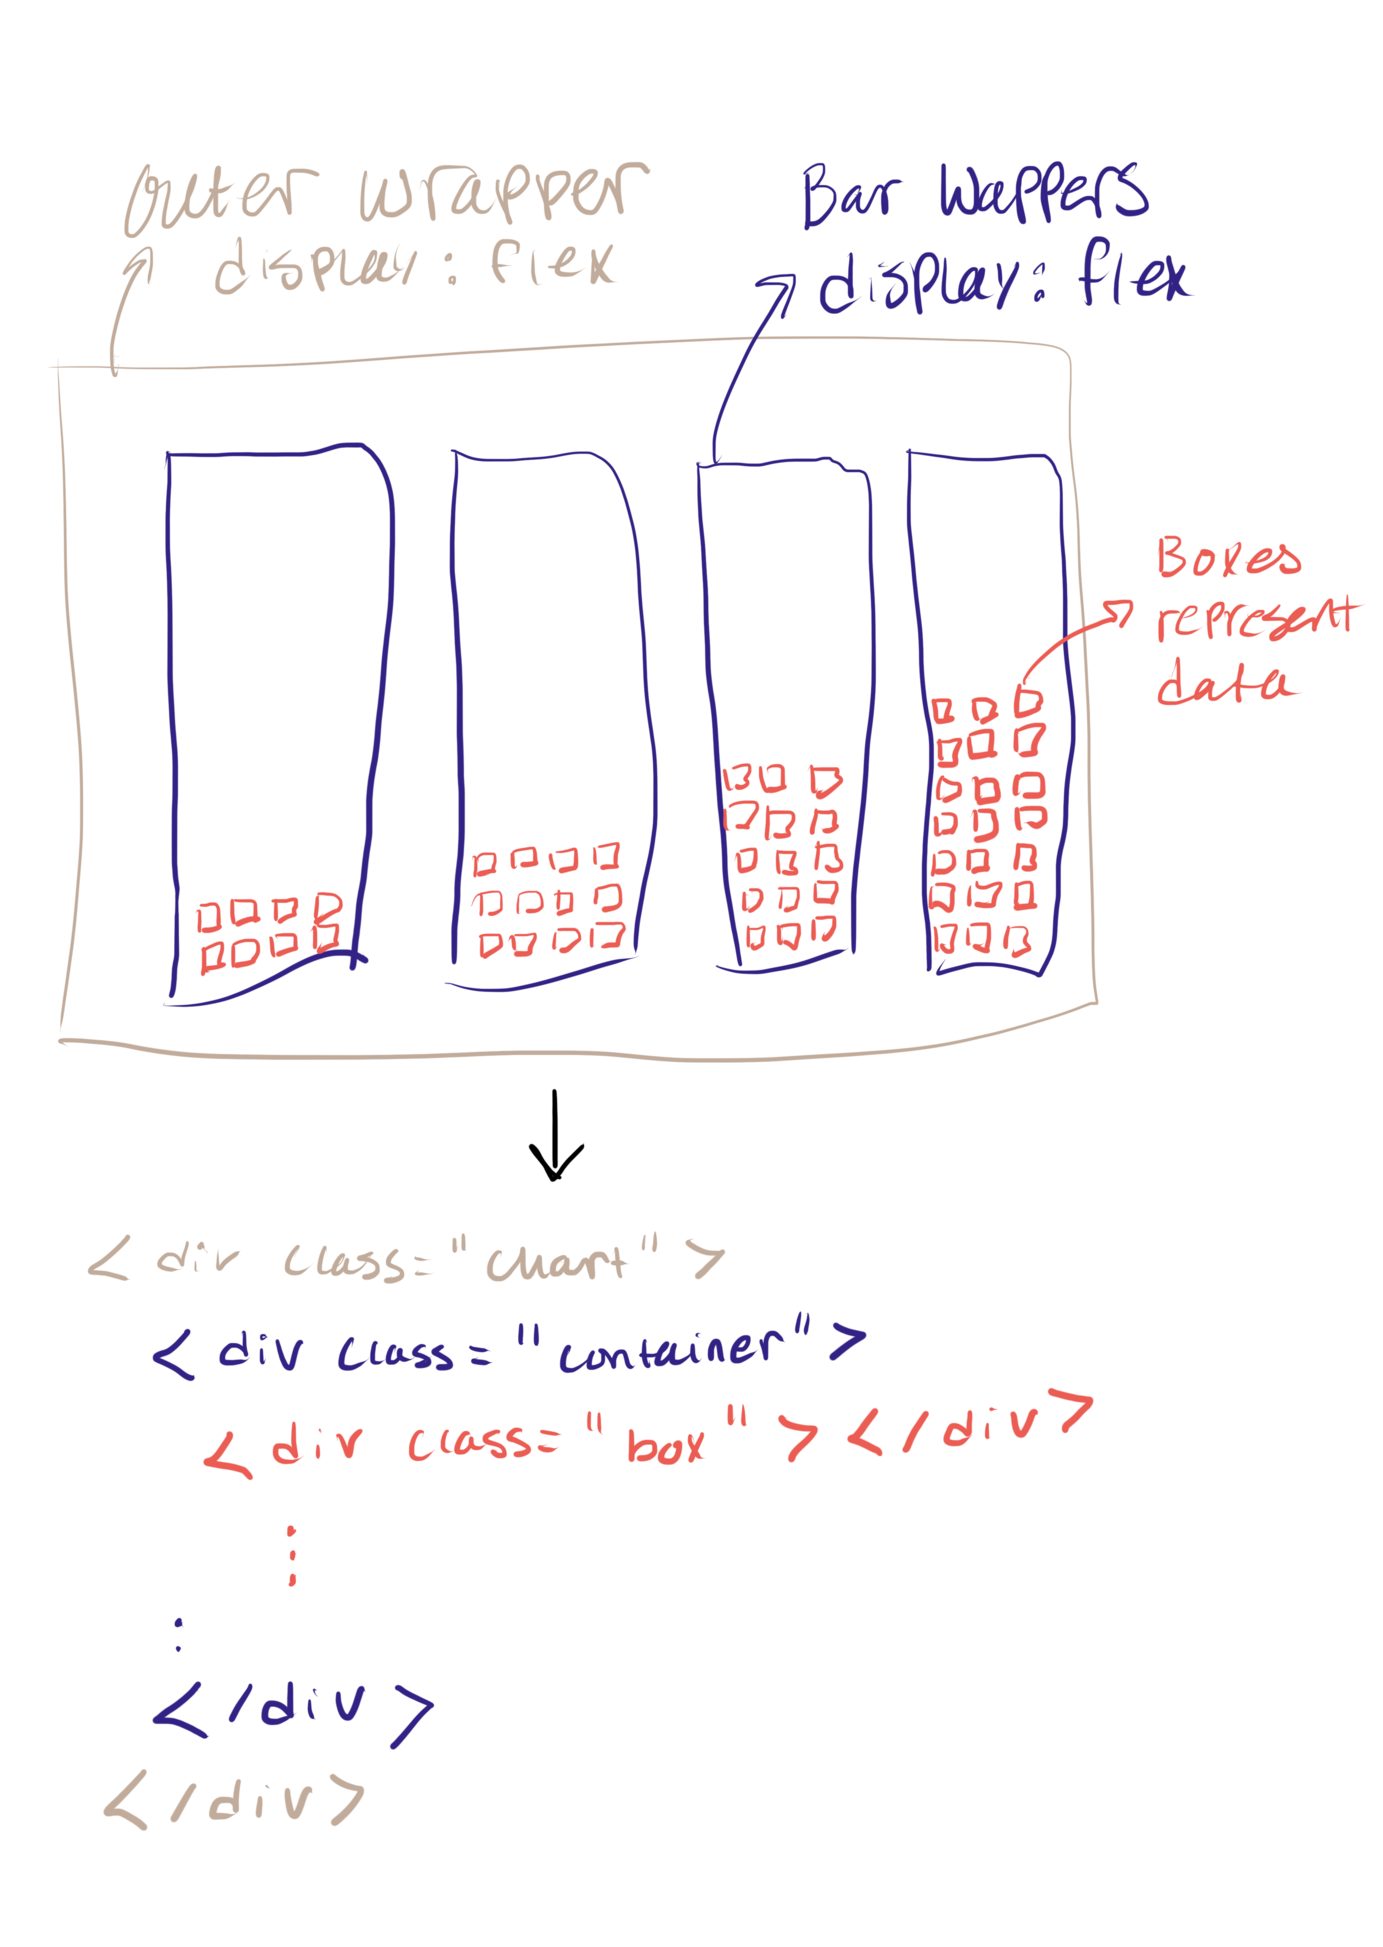 Outer wrapper
display: flex
Bar Wappers
display: flex
Boxes
represent
data
<div class="chart">
<div class="container">
<div class="box"></div>
</div>
</div>